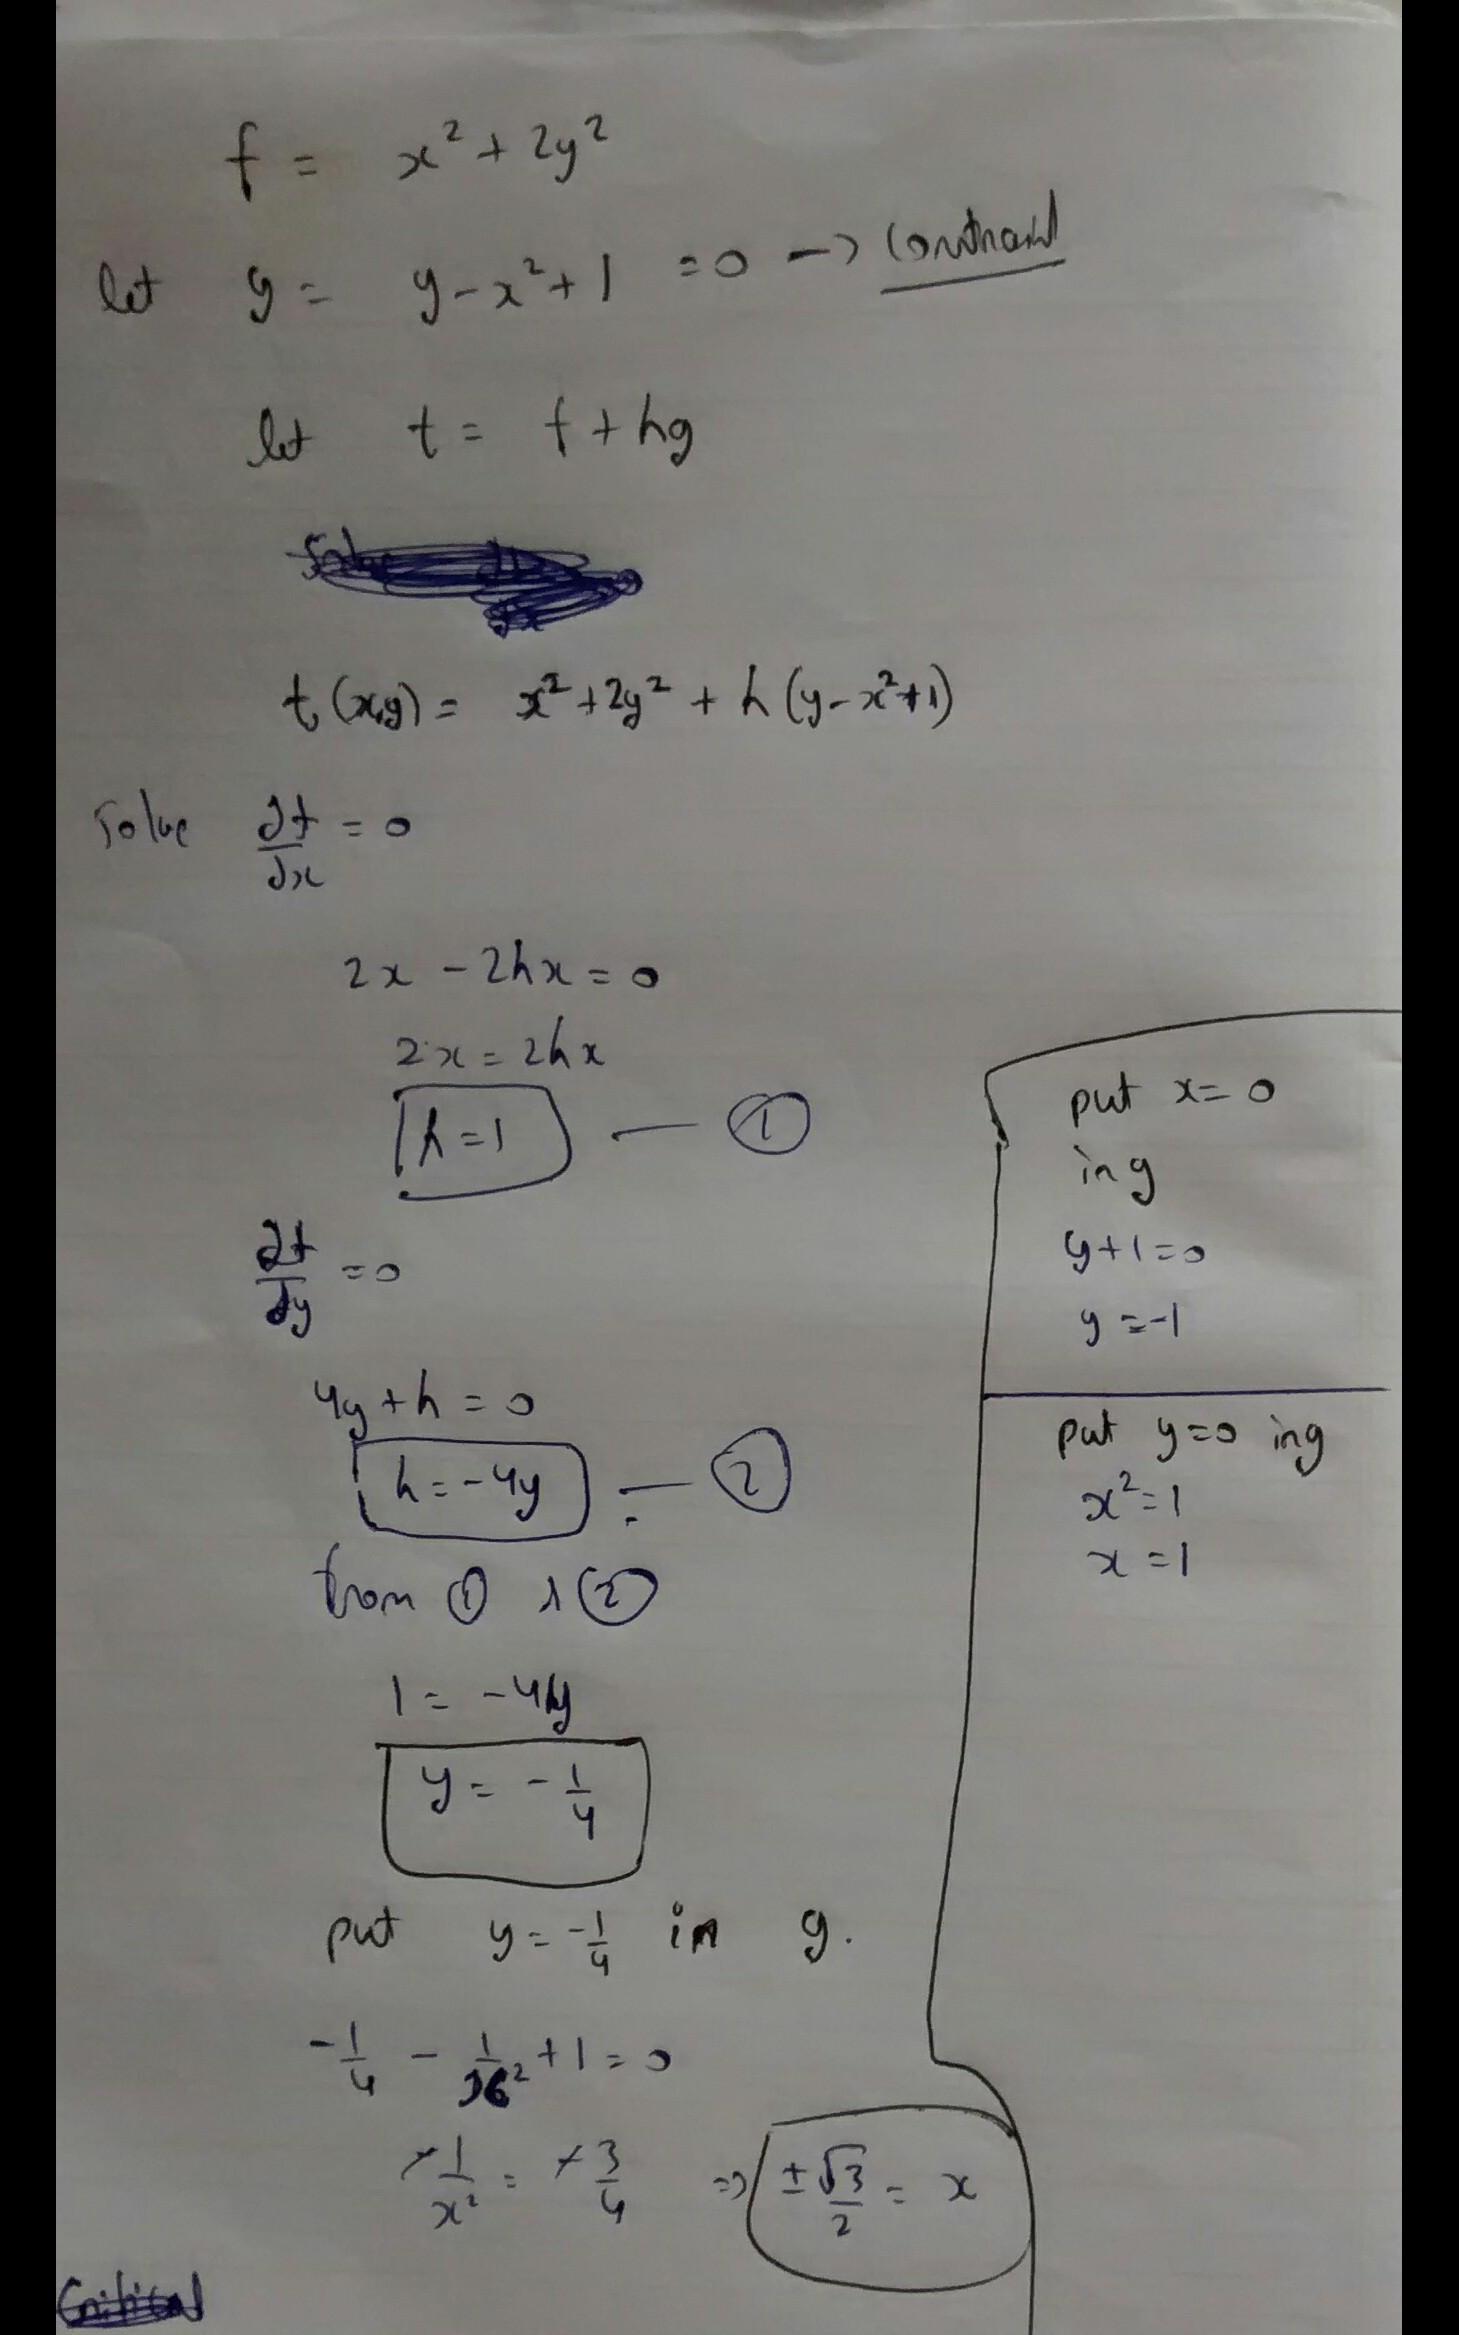 f = x² + 2y²
let g = y - x² + 1 = 0 → Constraint
let t = f + hg
t(x,y) = x² + 2y² + h(y - x² + 1)
Solve ∂t/∂x = 0
2x - 2hx = 0
2x = 2hx
h = 1 — ①
∂t/∂y = 0
4y + h = 0
h = -4y — ②
from ① & ②
1 = -4y
y = -1/4
put y = -1/4 in g.
-1/4 - 1/x² + 1 = 0
-1/x² = -3/4 => ±√3/2 = x
Critical
put x = 0
in g
y + 1 = 0
y = -1
put y = 0 in g
x² = 1
x = 1